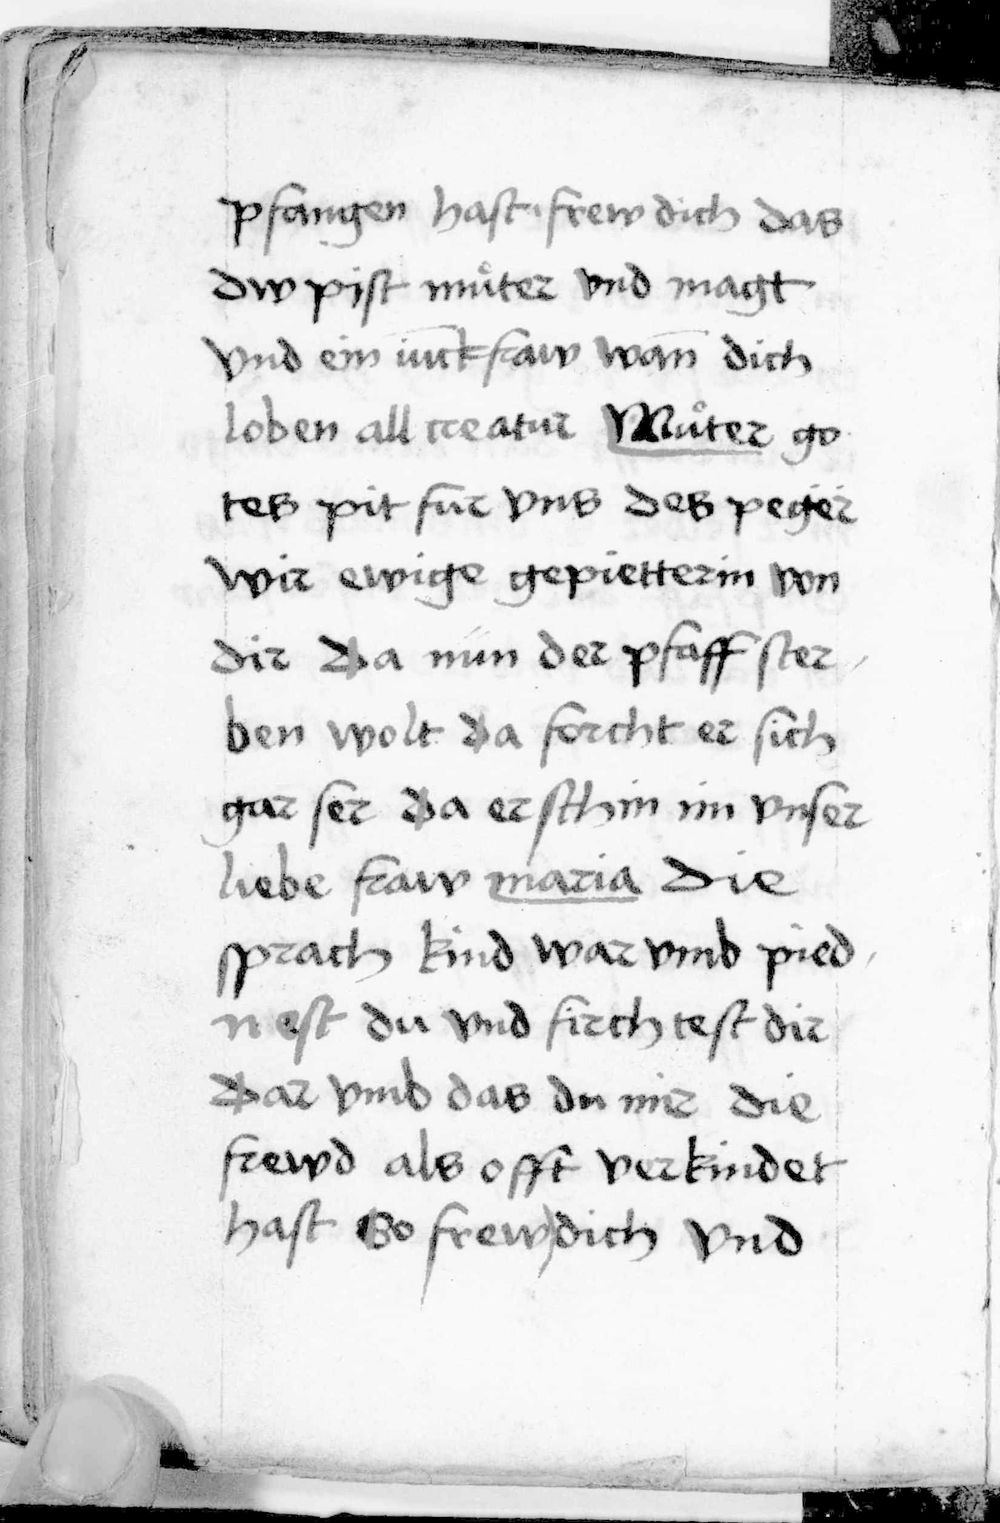 pfangen hast · frew dich das
dw pist muͦter vnd magt
vnd ein iūckfraw wan̄ dich
loben all creatur Muͦter go
tes pit fur vns des peger
wir ewige gepietterin von
dir Da nün der pfaff ster
ben wolt Da forcht er sich
gar ser Da er schin im vnser
liebe fraw maria Die
sprach kind war vmb pied
nest du vnd firchtest dir
Dar vmb das du mir die
frewd als offt verkindet
hast So frew dich vnd